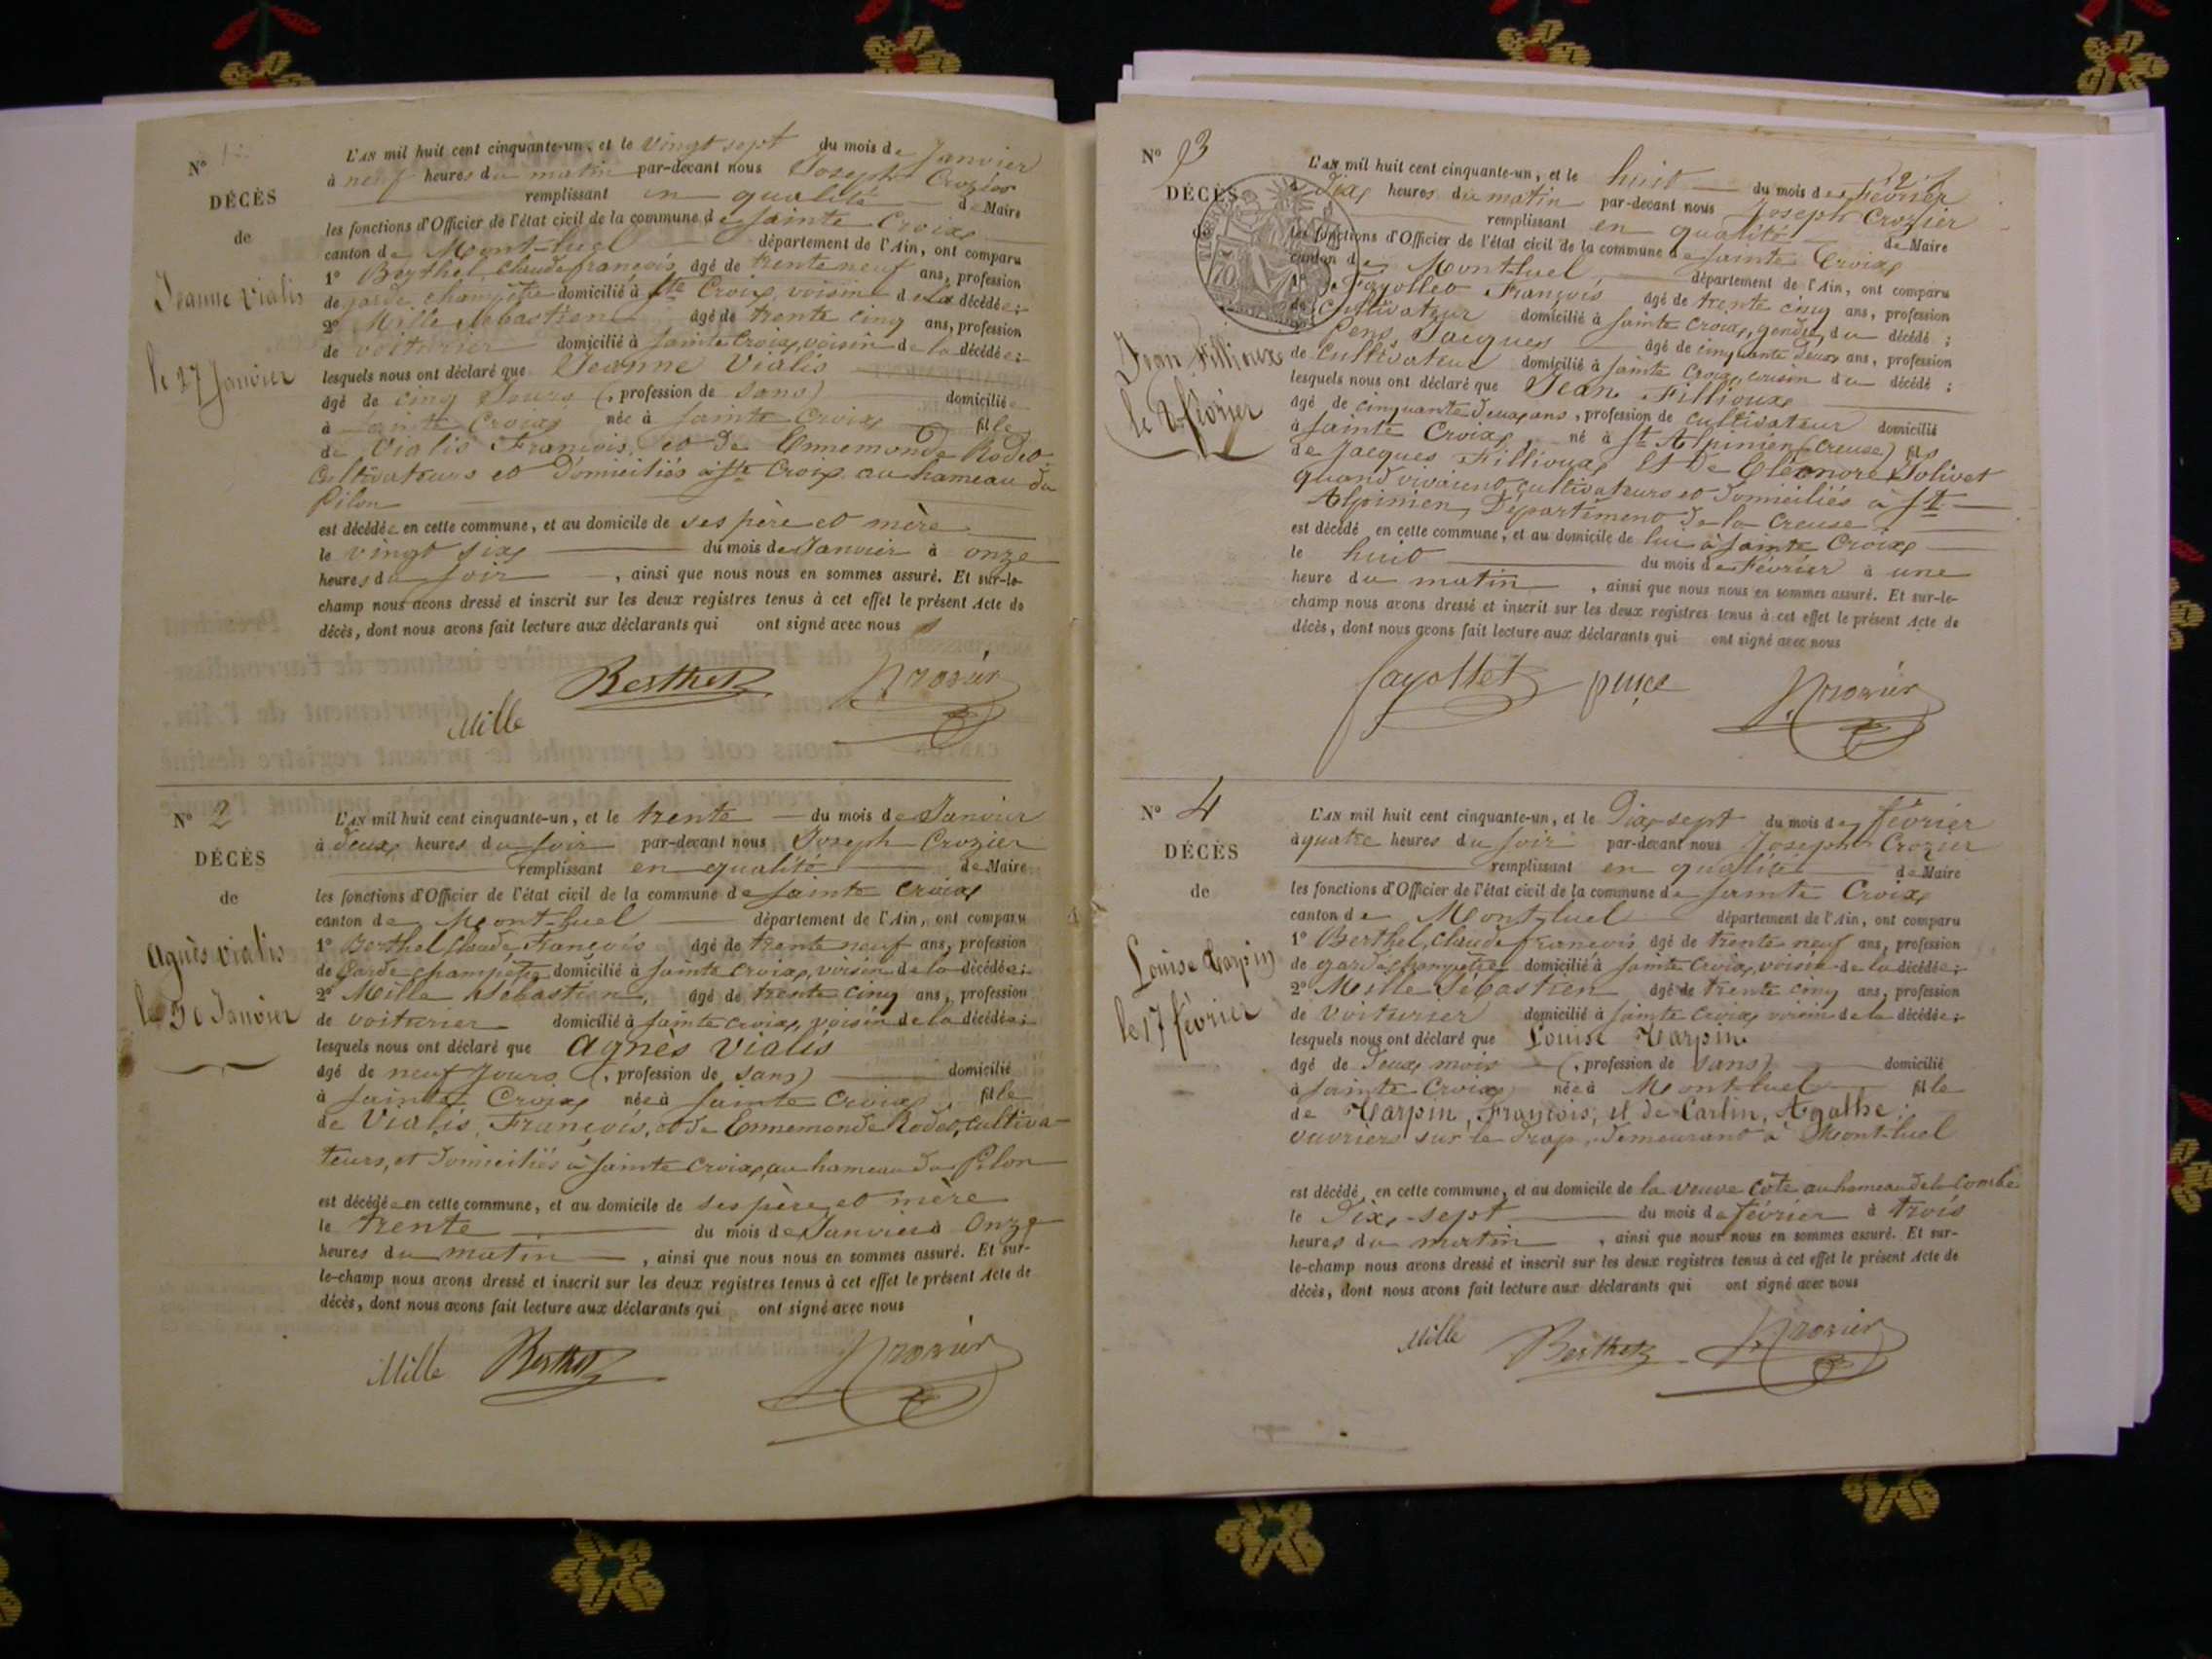 N°
DÉCÈS
de
Jeanne Vialis
le 27 Janvier
L'AN mil huit cent cinquante-un, et le vingt sept du mois de Janvier
à neuf heures du matin par-devant nous Joseph Crozier
remplissant en qualité de Maire
les fonctions d'Officier de l'état civil de la commune de Sainte Croix
canton de Mont-luel département de l'Ain, ont comparu
1° Berthel Claude françois âgé de trente neuf ans, profession
de garde champêtre domicilié à Ste Croix, voisin de la décédée;
2° Mille Sébastien âgé de trente cinq ans, profession
de voiturier domicilié à Sainte Croix, voisin de la décédée;
lesquels nous ont déclaré que Jeanne Vialis
âgé de cinq Jours (, profession de Sans) domicilié
à Sainte Croix née à Sainte Croix fille
de Vialis François, et de Ennemonde Rodet
Cultivateurs et Domiciliés à Ste Croix au hameau du
Pilon
est décédée en cette commune, et au domicile de ses père et mère
le vingt six du mois de Janvier à onze
heures du soir, ainsi que nous nous en sommes assuré. Et sur-le-
champ nous avons dressé et inscrit sur les deux registres tenus à cet effet le présent Acte de
décès, dont nous avons fait lecture aux déclarants qui ont signé avec nous
Berthet Crozier
Mille
N° 2
DÉCÈS
de
Agnès Vialis
le 30 Janvier
L'AN mil huit cent cinquante-un, et le trente du mois de Janvier
à deux heures du soir par-devant nous Joseph Crozier
remplissant en qualité de Maire
les fonctions d'Officier de l'état civil de la commune de Sainte Croix
canton de Mont-luel département de l'Ain, ont comparu
1° Berthel Claude François âgé de trente neuf ans, profession
de Garde champêtre domicilié à Sainte Croix, voisin de la décédée;
2° Mille Sébastien, âgé de trente cinq ans, profession
de voiturier domicilié à Sainte Croix, voisin de la décédée;
lesquels nous ont déclaré que Agnès Vialis
âgé de neuf Jours (, profession de Sans) domicilié
à Sainte Croix née à Sainte Croix fille
de Vialis, François, et de Ennemonde Rodet, cultiva-
teurs, et Domiciliés à Sainte Croix, au hameau du Pilon
est décédée en cette commune, et au domicile de ses père et mère
le trente du mois de Janvier à Onze
heures du matin, ainsi que nous nous en sommes assuré. Et sur-
le-champ nous avons dressé et inscrit sur les deux registres tenus à cet effet le présent Acte de
décès, dont nous avons fait lecture aux déclarants qui ont signé avec nous
Mille Berthet Crozier
N° 3
DÉCÈS
de
Jean Fillioux
le 8 février
L'AN mil huit cent cinquante-un, et le huit du mois de Février
à Dix heures du matin par-devant nous Joseph Crozier
remplissant en qualité de Maire
les fonctions d'Officier de l'état civil de la commune de Sainte Croix
canton de Mont-luel département de l'Ain, ont comparu
1° Fayollet François âgé de trente cinq ans, profession
de Cultivateur domicilié à Sainte Croix, gendre du décédé;
Pens Jacques âgé de cinquante deux ans, profession
de Cultivateur domicilié à Sainte Croix, cousin du décédé;
lesquels nous ont déclaré que Jean Fillioux
âgé de cinquante deux ans, profession de cultivateur domicilié
à Sainte Croix, né à St Alpinien (Creuse) fils
de Jacques Fillioux Et de Eléonore Jolivet
quand vivaient cultivateurs et domiciliés à St
Alpinien, Département de la Creuse
est décédé en cette commune, et au domicile de lui à Sainte Croix
le huit du mois de Février à une
heure du matin, ainsi que nous nous en sommes assuré. Et sur-le-
champ nous avons dressé et inscrit sur les deux registres tenus à cet effet le présent Acte de
décès, dont nous avons fait lecture aux déclarants qui ont signé avec nous
fayollet Crozier
N° 4
DÉCÈS
de
Louise Harpin
le 17 février
L'AN mil huit cent cinquante-un, et le Dix-sept du mois de février
à quatre heures du soir par-devant nous Joseph Crozier
remplissant en qualité de Maire
les fonctions d'Officier de l'état civil de la commune de Sainte Croix
canton de Montluel département de l'Ain, ont comparu
1° Berthel, Claude françois âgé de trente neuf ans, profession
de garde champêtre domicilié à Sainte Croix, voisin de la décédée;
2° Mille Sébastien âgé de trente cinq ans, profession
de Voiturier domicilié à Sainte Croix, voisin de la décédée;
lesquels nous ont déclaré que Louise Harpin
âgé de Deux mois (, profession de Sans) domicilié
à Sainte Croix née à Montluel fille
de Harpin, François, et de Carlin, Agathe;
ouvriers sur le Drap, demeurant à Mont-luel
est décédé en cette commune, et au domicile de la veuve Côte au hameau de la Combe
le Dix-sept du mois de février à trois
heures du matin, ainsi que nous nous en sommes assuré. Et sur-
le-champ nous avons dressé et inscrit sur les deux registres tenus à cet effet le présent Acte de
décès, dont nous avons fait lecture aux déclarants qui ont signé avec nous
Mille Berthet Crozier